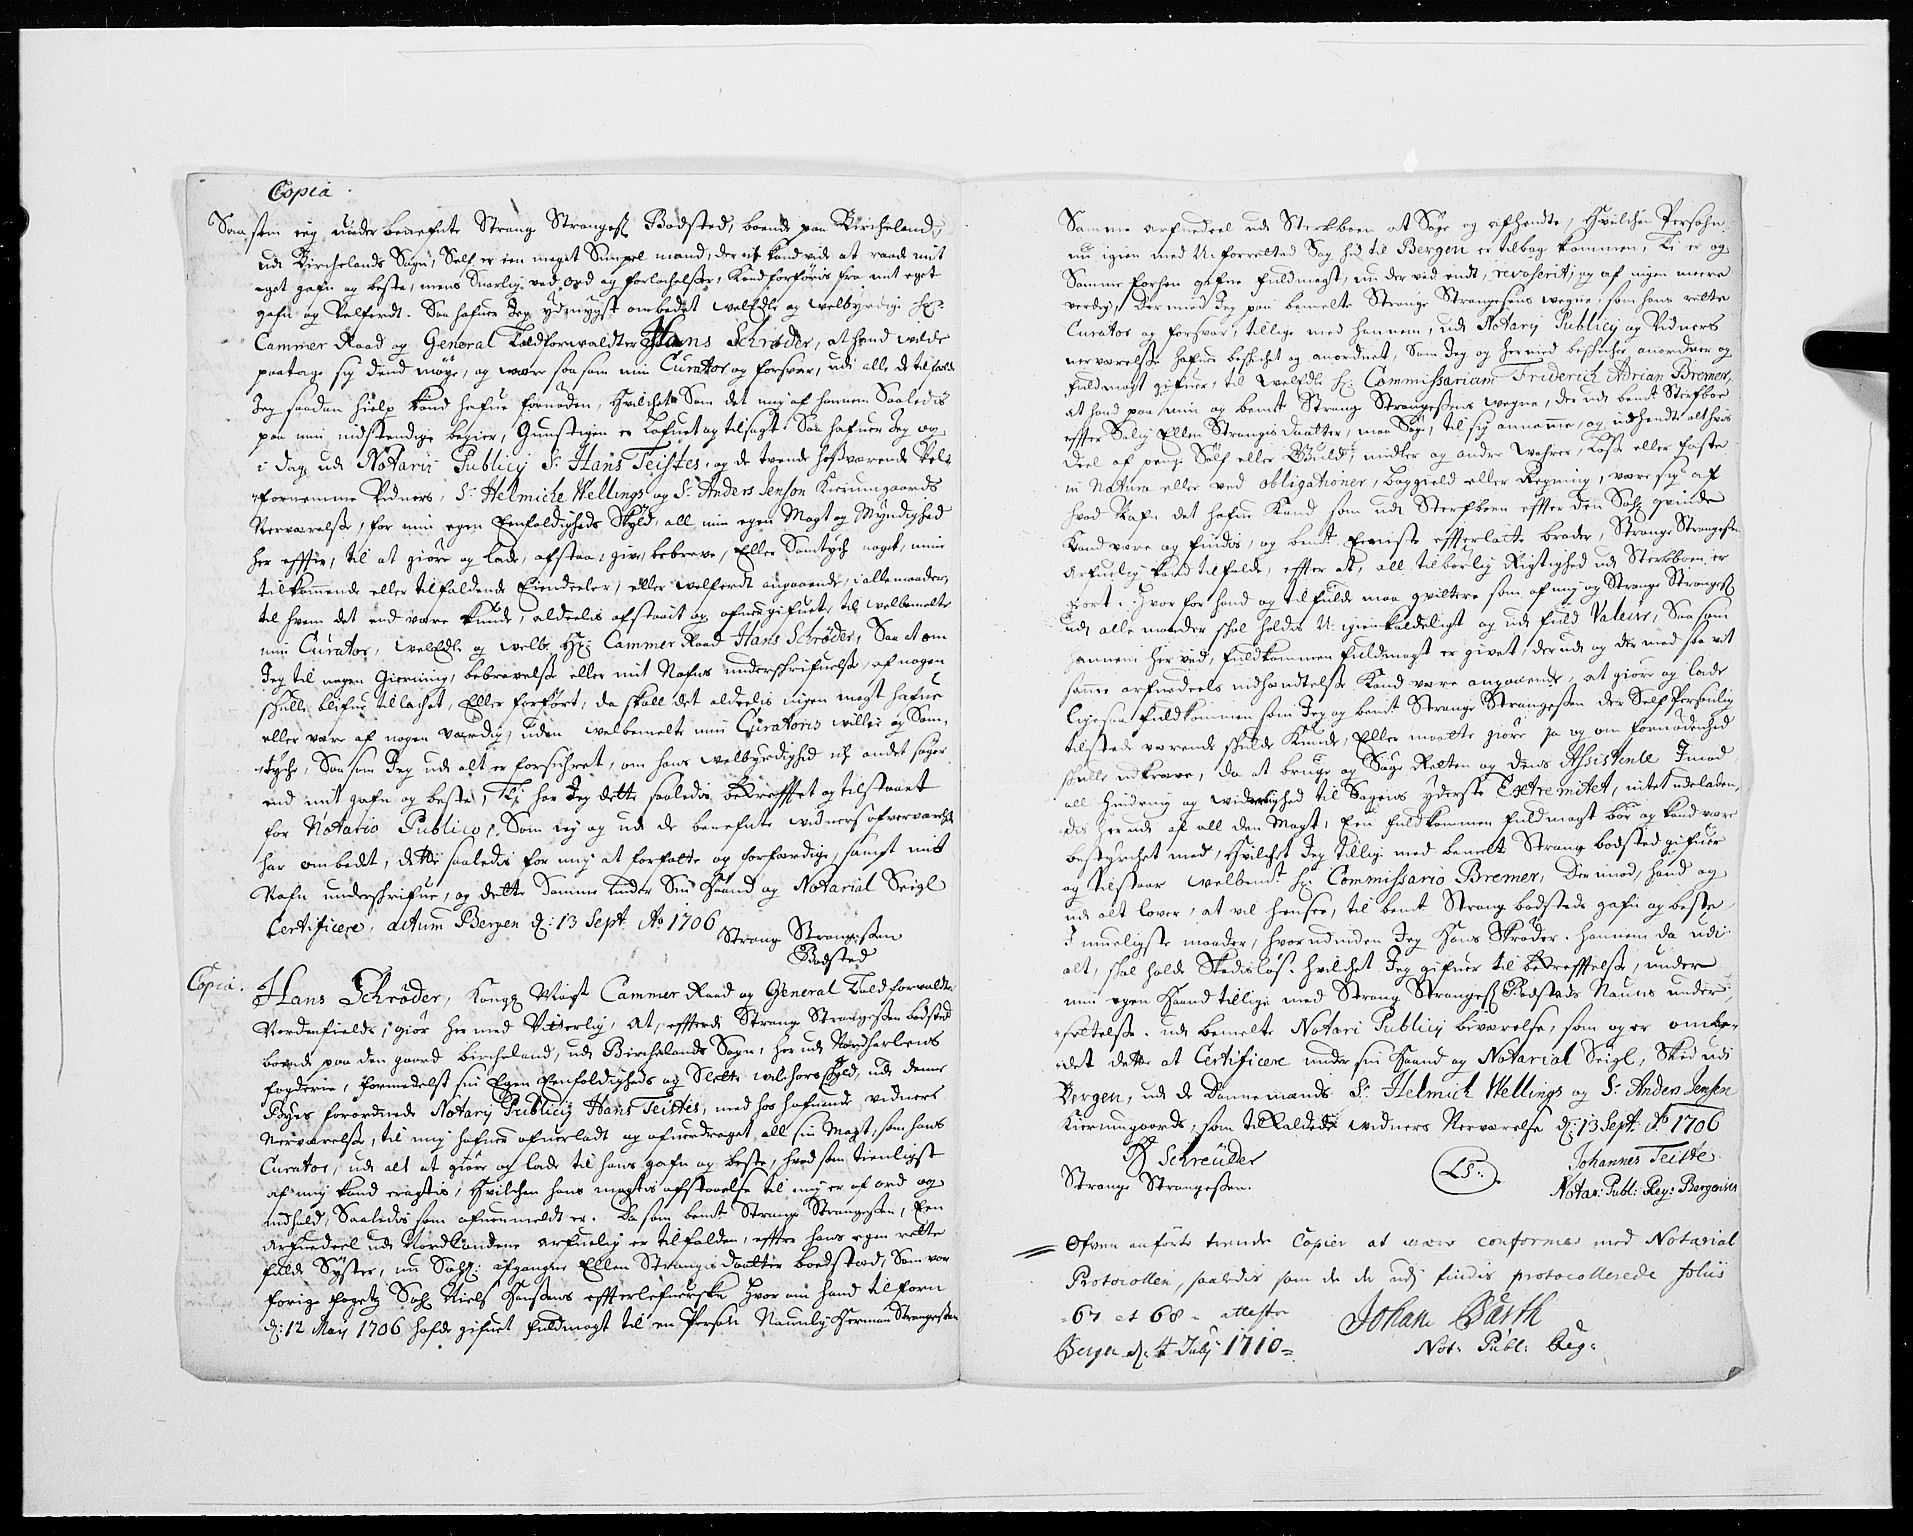 Copia
Saasom ieg underbenefnte Strang Strangesß Bodsted, boende paa Bircheland,
udi Birchelands Sogn, Self er ien meget Simpel mand, der ej kand vide at raade mit
eget gafn og beste, mens Snarlig ved ord og forlochelsser, Kand forføris fra mit eget
gafn og Velferdt. Saa hafuer Jeg ydmygst ombedet welEdle og welbyrdige Hr:
Cammer Raad og General Toldforvalter Hans Schrøder, at hand wilde
paatage sig dend møye, og være saasom min Curator og forsvar, udi alle de tilfelde
Jeg saadan hielp kand hafue fornøden, Hvilchet Som det mig af hannem Saaledis
paa min indstendige begier, Gunstigen er Lofuet og tilsagt. Saa hafuer Jeg og
i dag, udi Notarij Publicij Sr. Hans Teistes, og de tvende hosværende Vel-
fornemme Vidners, Sr. Helmiche Wellings og Sr. Anders Jenson Kierumgaards
Nerværelsse, for min egen Eenfoldigheds Skyld, all min egen Magt og Myndighed
her effter, til at giøre og lade, afstaa, give, bebreve, Eller Samtyche noget, min
tilkommende eller tilfaldende Eiendeeler, eller welferdt angaaende, i alle maader,
til hvem det end være kunde, aldeelis afstaait og ofuergifuet til welbemelte
min Curator, welEdle og welb. Hr: Cammer Raad Hans Schrøder, Saa at om
Jeg til nogen Gierning, bebrevelsse eller mit Nafns underschrifuelsse, af nogen
skulle blifue tillochet, Eller forført, da skall det aldeelis ingen magt hafue
eller være af nogen værdig, uden welbemelte min Curatoris willie og Sam-
tyche, Saasom Jeg udi alt er forsichret, om hans welbyrdighed ej andet søger
end mit gafn og beste, Thj har Jeg dette saaledis bekrefftet og tilstaaet
for Notario Publico, Som ieg og udi de benefnte widners ofverværelse
har ombedt, dette saaledis for mig at forfatte og forfærdige, sampt mit
Nafn underschrifue, og dette Samme under Sin Haand og Notarial Seigl
Certificere, actum Bergen d: 13 Sept. Ao 1706
Strang Strangessen
Bodsted
Copia. Hans Schrøder, Kongl Mayst Cammer Raad og General Toldforvalter
Nordenfields, giør hermed Vitterlig, At, effterdi Strang Strangessen bodsted
boende paa den gaard bircheland, udi Birchelands Sogn, her udi Nordhorlens
fogderie, formedelst sin Egen Eenfoldigheds og Slette wilchors skyld, udi denne
Byes forordnede Notarij Publicij Hans Teistes, med hos hafuende vidners
Nerværelsse, til mig hafuer ofuerladt og ofuerdraget all sin Magt, som hans
Curator, udi alt at giøre og lade til hans gafn og beste, hvad som tienligst
af mig kand eragtis, Hvilchen hans magtes afstaaelse til mig er af ord og
indhold, Saaledis som ofuenmeldt er. Da som bemt Strange Strangessen, Een
Arfuedeel udi Nordlandene arfuelig er tilfalden, effter hans egen rette
fulde Søster, nu Sahl: afgangne Ellen Strangis daatter boedsted, Som var
forige fogetz Sahl Niels Hansens effterlefuerske, hvor om hand tilforn
d: 12 Maij 1706 hafde gifuet fuldmagt til en Person Naunlig Herman Strangessen
Samme arfuedeel udi Sterfboen at Søge og afhendte, Hvilchen Persohn
nu igien med U-forrettet Sag hid til Bergen er tilbage kommen, Ti er og
Samme forhen gifne fuldmagt, nu der ved endt, revocerit, og af ingen meere
verdig, Dermed Jeg paa bemelte Strange Strangessens wegne, som hans rette
Curator og forsvar, tillige med hannem, udi Notarij Publicij og Vidners
nerværelsse hafuer beskichet og anordnet, Som Jeg og hermed beskicher anordner og
fuldmagt gifuer, til welEdle Hr: Commissarium Friderich Adrian Bremer,
at hand paa min og bemt Strang Strangessens wegne, der udi bemt Sterfboe
effter Salig Ellen Strangis daatter, maa Søge, til sig annamme, og udhendte alt hvis
deel af penge, Sølf eller Guld, midler og andre wahrer, Løst eller faste
in Natura eller ved obligationer, boggield eller Regning, være sig af
hvad Nafn det hafue kand som udi Sterfboen effter den Sahl qvinde
kand være og findis, og bemt hendis effterlatte broder, Strange Strangessen
Arfuelig kand tilfalde, effter at, all tilbørlig Rigtighed udi Sterfboen er
giort. Hvor for hand og tilfulde maa qvittere som af mig og Strange Strangess
udi alle maader skal holdis U-igienkaldeligt og udi fuld Valeur, Saasom
hannem herved, fuldkommen fuldmagt er givet, derudi og der med saa vit
samme arfuedeels indhandtelsse Kand være angaaende, at giøre og lade
ligesaa fuldkommen som Jeg og bemt Strange Strangessen der Self Personlig
tilstede værende skulde kunde, Eller maatte giøre Ja og om fornødenhed
skulle udkræve, da at bruge og Søge Retten og dens Assistente Imod
all hindring og widerlighed til Sagens yderste Extremitet, intet udeladen,
dis herudi af all den Magt, Een fuldkommen fuldmagt bør og kand være
bestyrchet med, Hvilchet Jeg tillige med bemelte Strang bodsted gifuer
og tilstaar welbemt Hr: Commissario Bremer, Der imod, hand og
udi alt lover, at vil hensee, til bemt Strang bodsteds gafn og beste
I mueligste maader, hvorudinden Jeg Hans Skrøder. hannem da udi
alt, skal holde Skadisløs. hvilchet Jeg gifuer til bekrefftelsse, under
min egen Haand tillige med Strang Strangess Bodsteds Nauns under-
settelsse. udi bemelte Notari Publicij biværelse, som og er ombe-
det dette at Certificere under sin Haand og Notarial Seigl, Sked udi
Bergen, udi de Dannemænds Sr. Helmich Wellings og Sr. Anders Jensen
Kierumgaards, som tilkaldede widners Nerværelse d: 13 Sept: Ao 1706
H Schreüder
Strange Strangessen.
LS:
Johannes Teiste.
Notar: Publ: Reg: Bergensis
Ofven anførte tvende Copier at være conformer med Notarial
Protocollen, saaledis som de der udj findis protocollerede foliis
67 et 68 - attester
Bergen d: 4 Julij 1710
Johan Garth
Not: Publ: Reg: